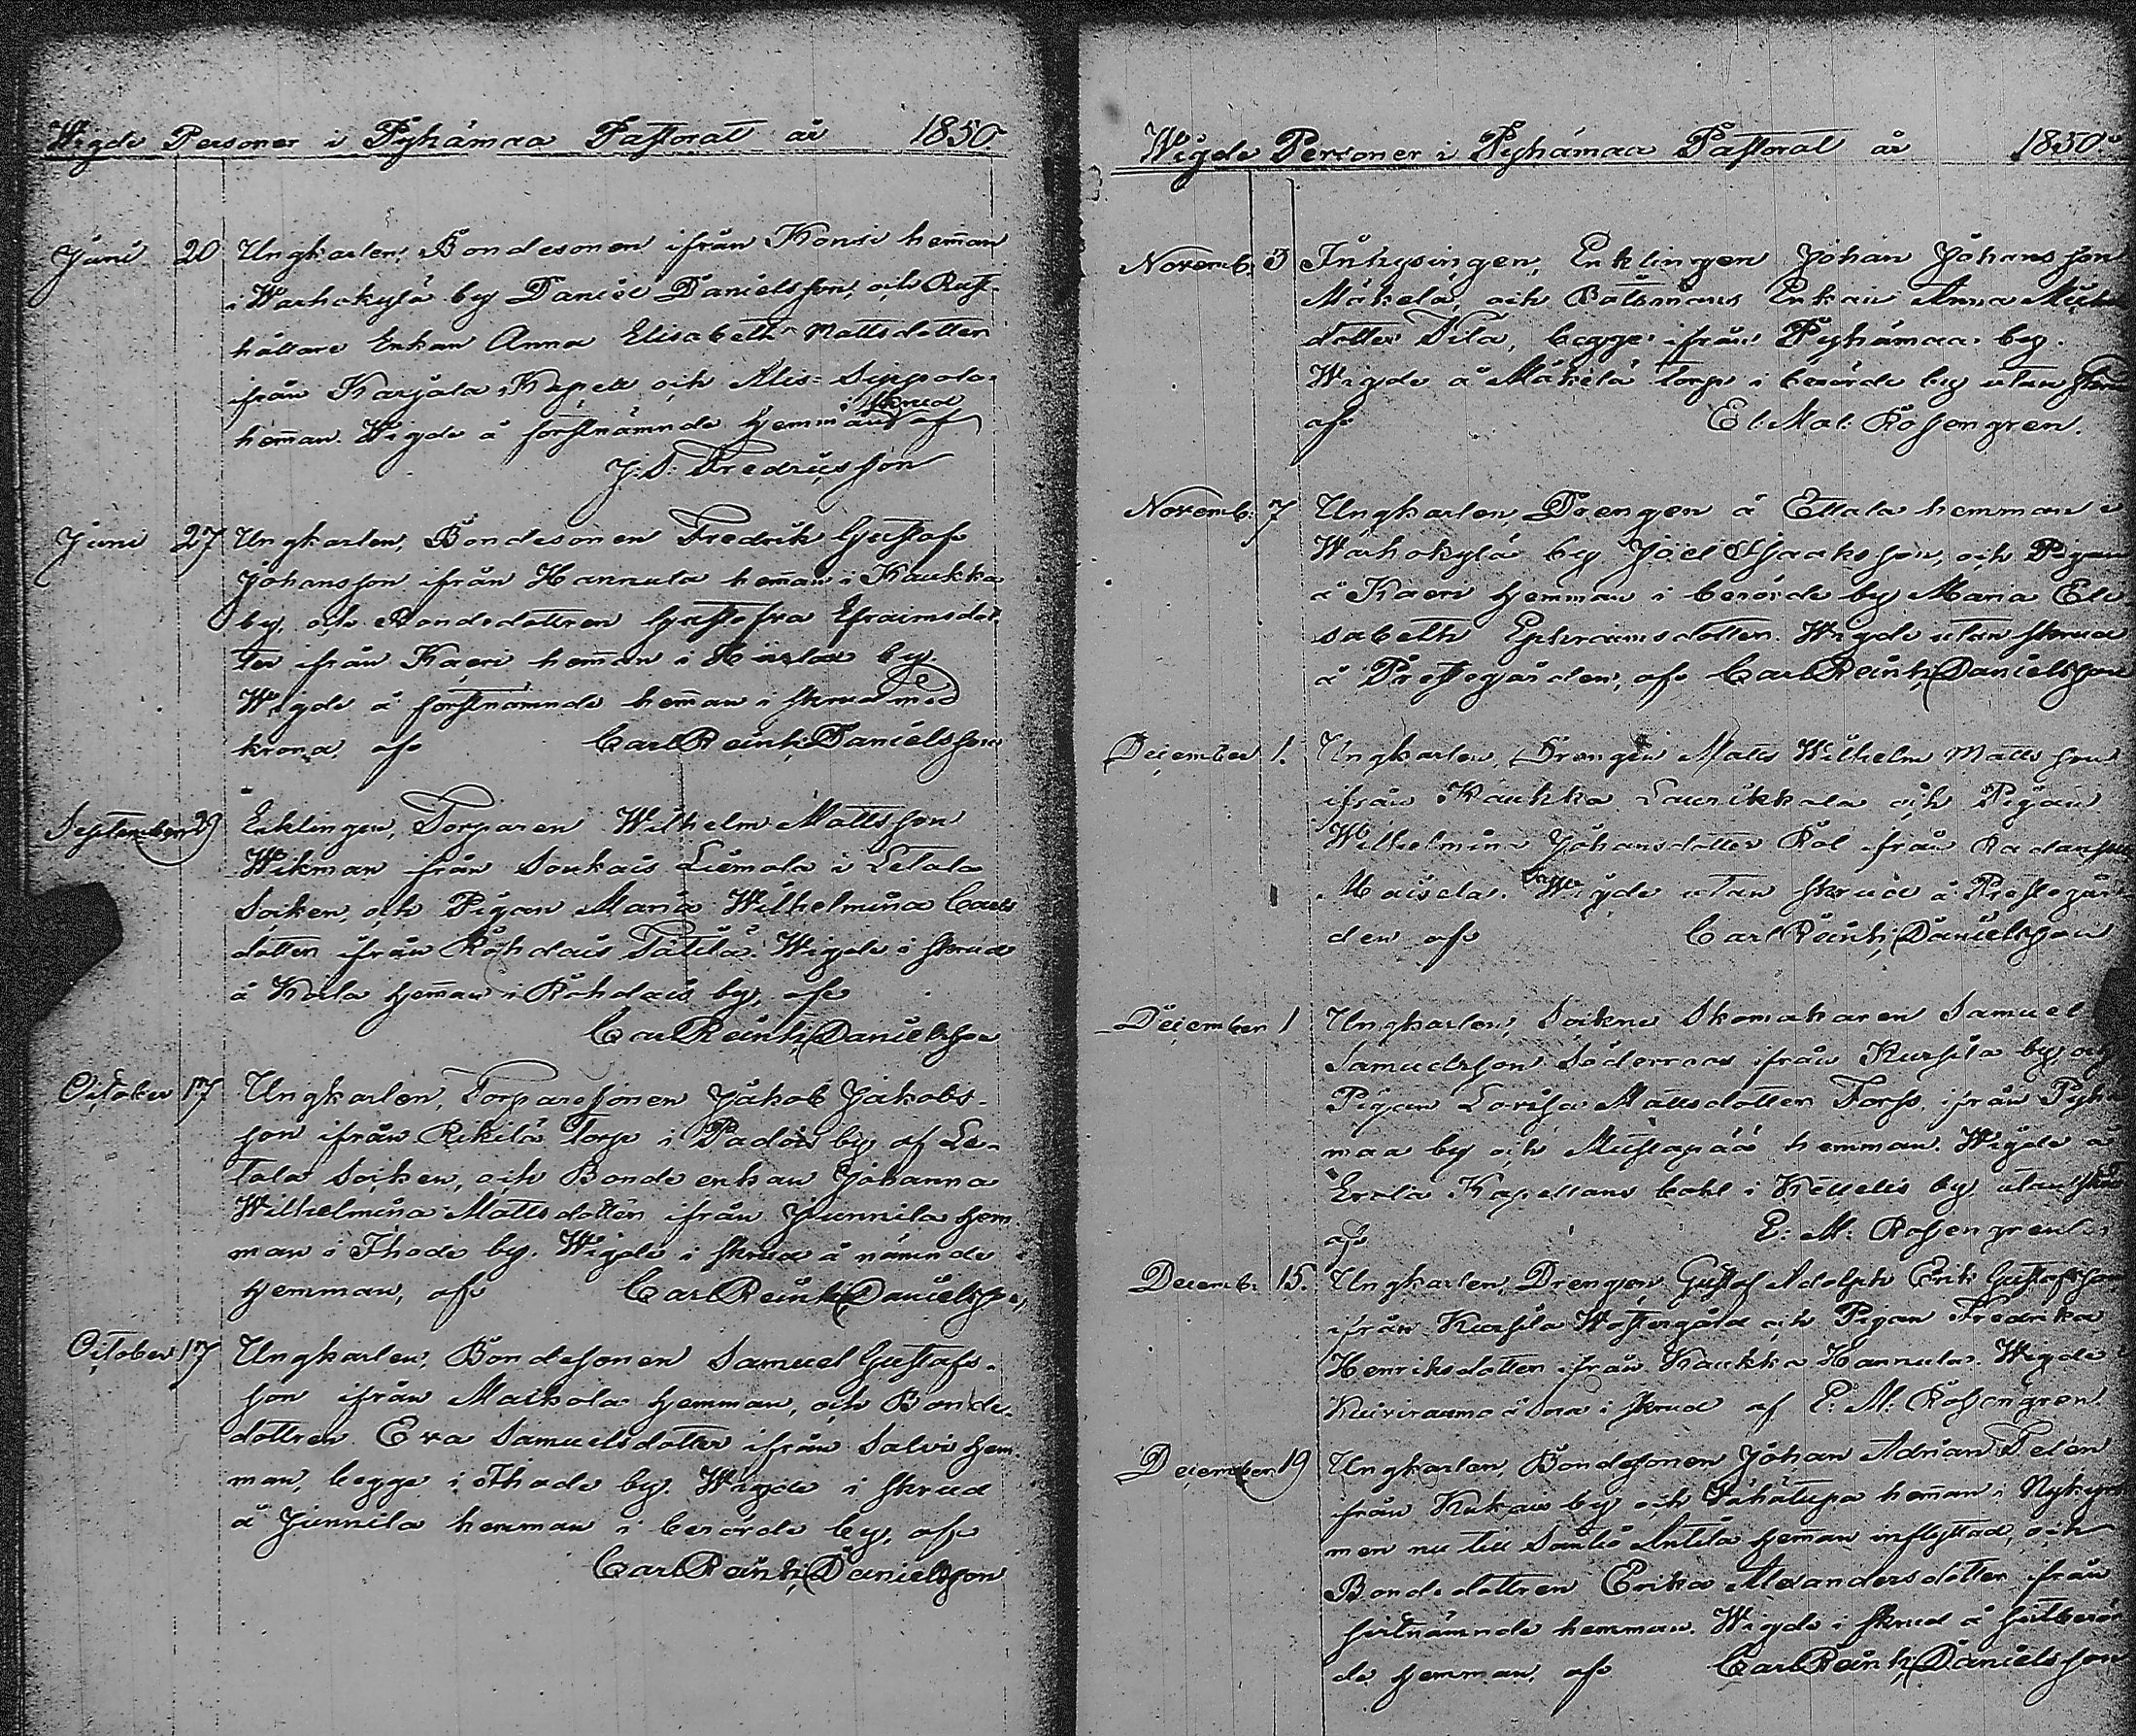 Wigde Personer i Pyhämaa Pastorat år 1850
Juni 20 Ungkarlen, Bondesonen ifrån Konsi hem̄an
i Warhokylä by Daniel Danielsson, och Rust-
hållare Enkan Anna Elisabeth Mattsdotter
från Karjala Kapell och Alis-Seppola
i skrud
hem̄an. Wigde å förstnämnde Hemman af
J: S: Fredriksson
Juni 27 Ungkarlen, Bondesonen Fredrik Gustaf
Johansson ifrån Hannula hem̄an i Kaukka
by, och Bondedottren Gustafva Efraimsdot
ter ifrån Kaeri hem̄an i by
Wigde å förstnämnde hem̄an i skrud med
krona, af Carl Reinh: Danielsson
September 29 Enklingen, Torparen Wilhelm Mattsson
Wikman från Soukais Liemola i Letala
Socken, och Pigan Maria Wilhelmina Carls
dotter ifrån Rohdais Tatila. Wigde i skrud
å Kula Hem̄an i Rohdais by, af
Carl Reinh: Danielsson
October 17 Ungkarlen, Torparesonen Jakob Jakobs-
son ifrån Rikilä Torp i Padois by af Le-
tala Socken, och Bonde enkan Johanna
Wilhelmina Mattsdotter ifrån Junnila Hem-
man i Ihode by. Wigde i skrud å nämnde
Hemman, af Carl Reinh: Danielsson
October 17 Ungkarlen, Bondesonen Samuel Gustafs-
son ifrån Maikola Hemman, och Bonde-
dottren Eva Samuelsdotter ifrån Salvi Hem-
man, begge i Ihode by. Wigde i skrud
å Junnila hemman i berörde by, af
Carl Reinh: Danielsson
Wigde Personer i Pyhämaa Pastorat år 1850
Novemb: 3 Inhysingen, Enklingen Johan Johansson
Mäkelä, och Båtsmans Enkan Anna
dotter Nila, begge ifrån Pyhämaa by.
Wigde å Mäkelä Torp i berörde by utan skrud
af El: Mal: Rosengren.
Novemb: 7 Ungkarlen, Drengen å Ettala hemman i
Warhokylä by Joel Isaaksson, och Pigan
å Kaeri Hemman i berörde by Maria Eli
sabeth Ephraimsdotter. Wigde utan skrud
å Prestegården, af Carl Reinh: Danielsson
December 1. Ungkarlen, Drengen Matts Wilhelm Mattsson
ifrån Kaukka Laurikkala och Pigan
Wilhelmina Johansdotter Röl ifrån
Maisela. Wigde utan skrud å Prestegår
den af Carl Reinh: Danielsson
December 1 Ungkarlen, Sockne Skomakaren Samuel
Samuelsson Söderroos ifrån Kursila by och
Pigan Lovisa Mattsdotter Forss, ifrån Pyhä
maa by och Mustapää hemman. Wigde å
Erola Kapellans bohl i Kettelis by utan skrud
af E: M: Rosengren
Decemb: 15. Ungkarlen, Drengen, Gustaf Adolph Erik Gustafsson
ifrån Kursila Westergård och Pigan Fredrika
Henriksdotter ifrån Kaukka Hannula. Wigde
Kuivirauma i skrud af E: M: Rosengren
December 19 Ungkarlen, Bondesonen Johan Adrian Telén
från Kukain by och Tähätupa hem̄an i Nykyrko
men nu till Santio Antila Hem̄an inflyttad, och
Bondedottren Erika Alexandersdotter ifrån
sistnämnde hemman. Wigde i skrud å sistberör
de Hemman, af Carl Reinh: Danielsson